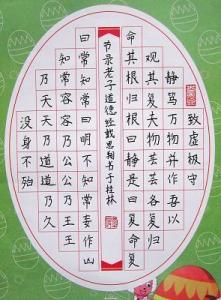 致虚极守
静笃万物并作吾以
观其复夫物芸芸各复归
命其根归根曰静是曰复命复
节录老子道德经戴思翔书于桂林
曰常知常曰明不知常妄作凶
知常容容乃公公乃王王
乃天天乃道道乃久
没身不殆